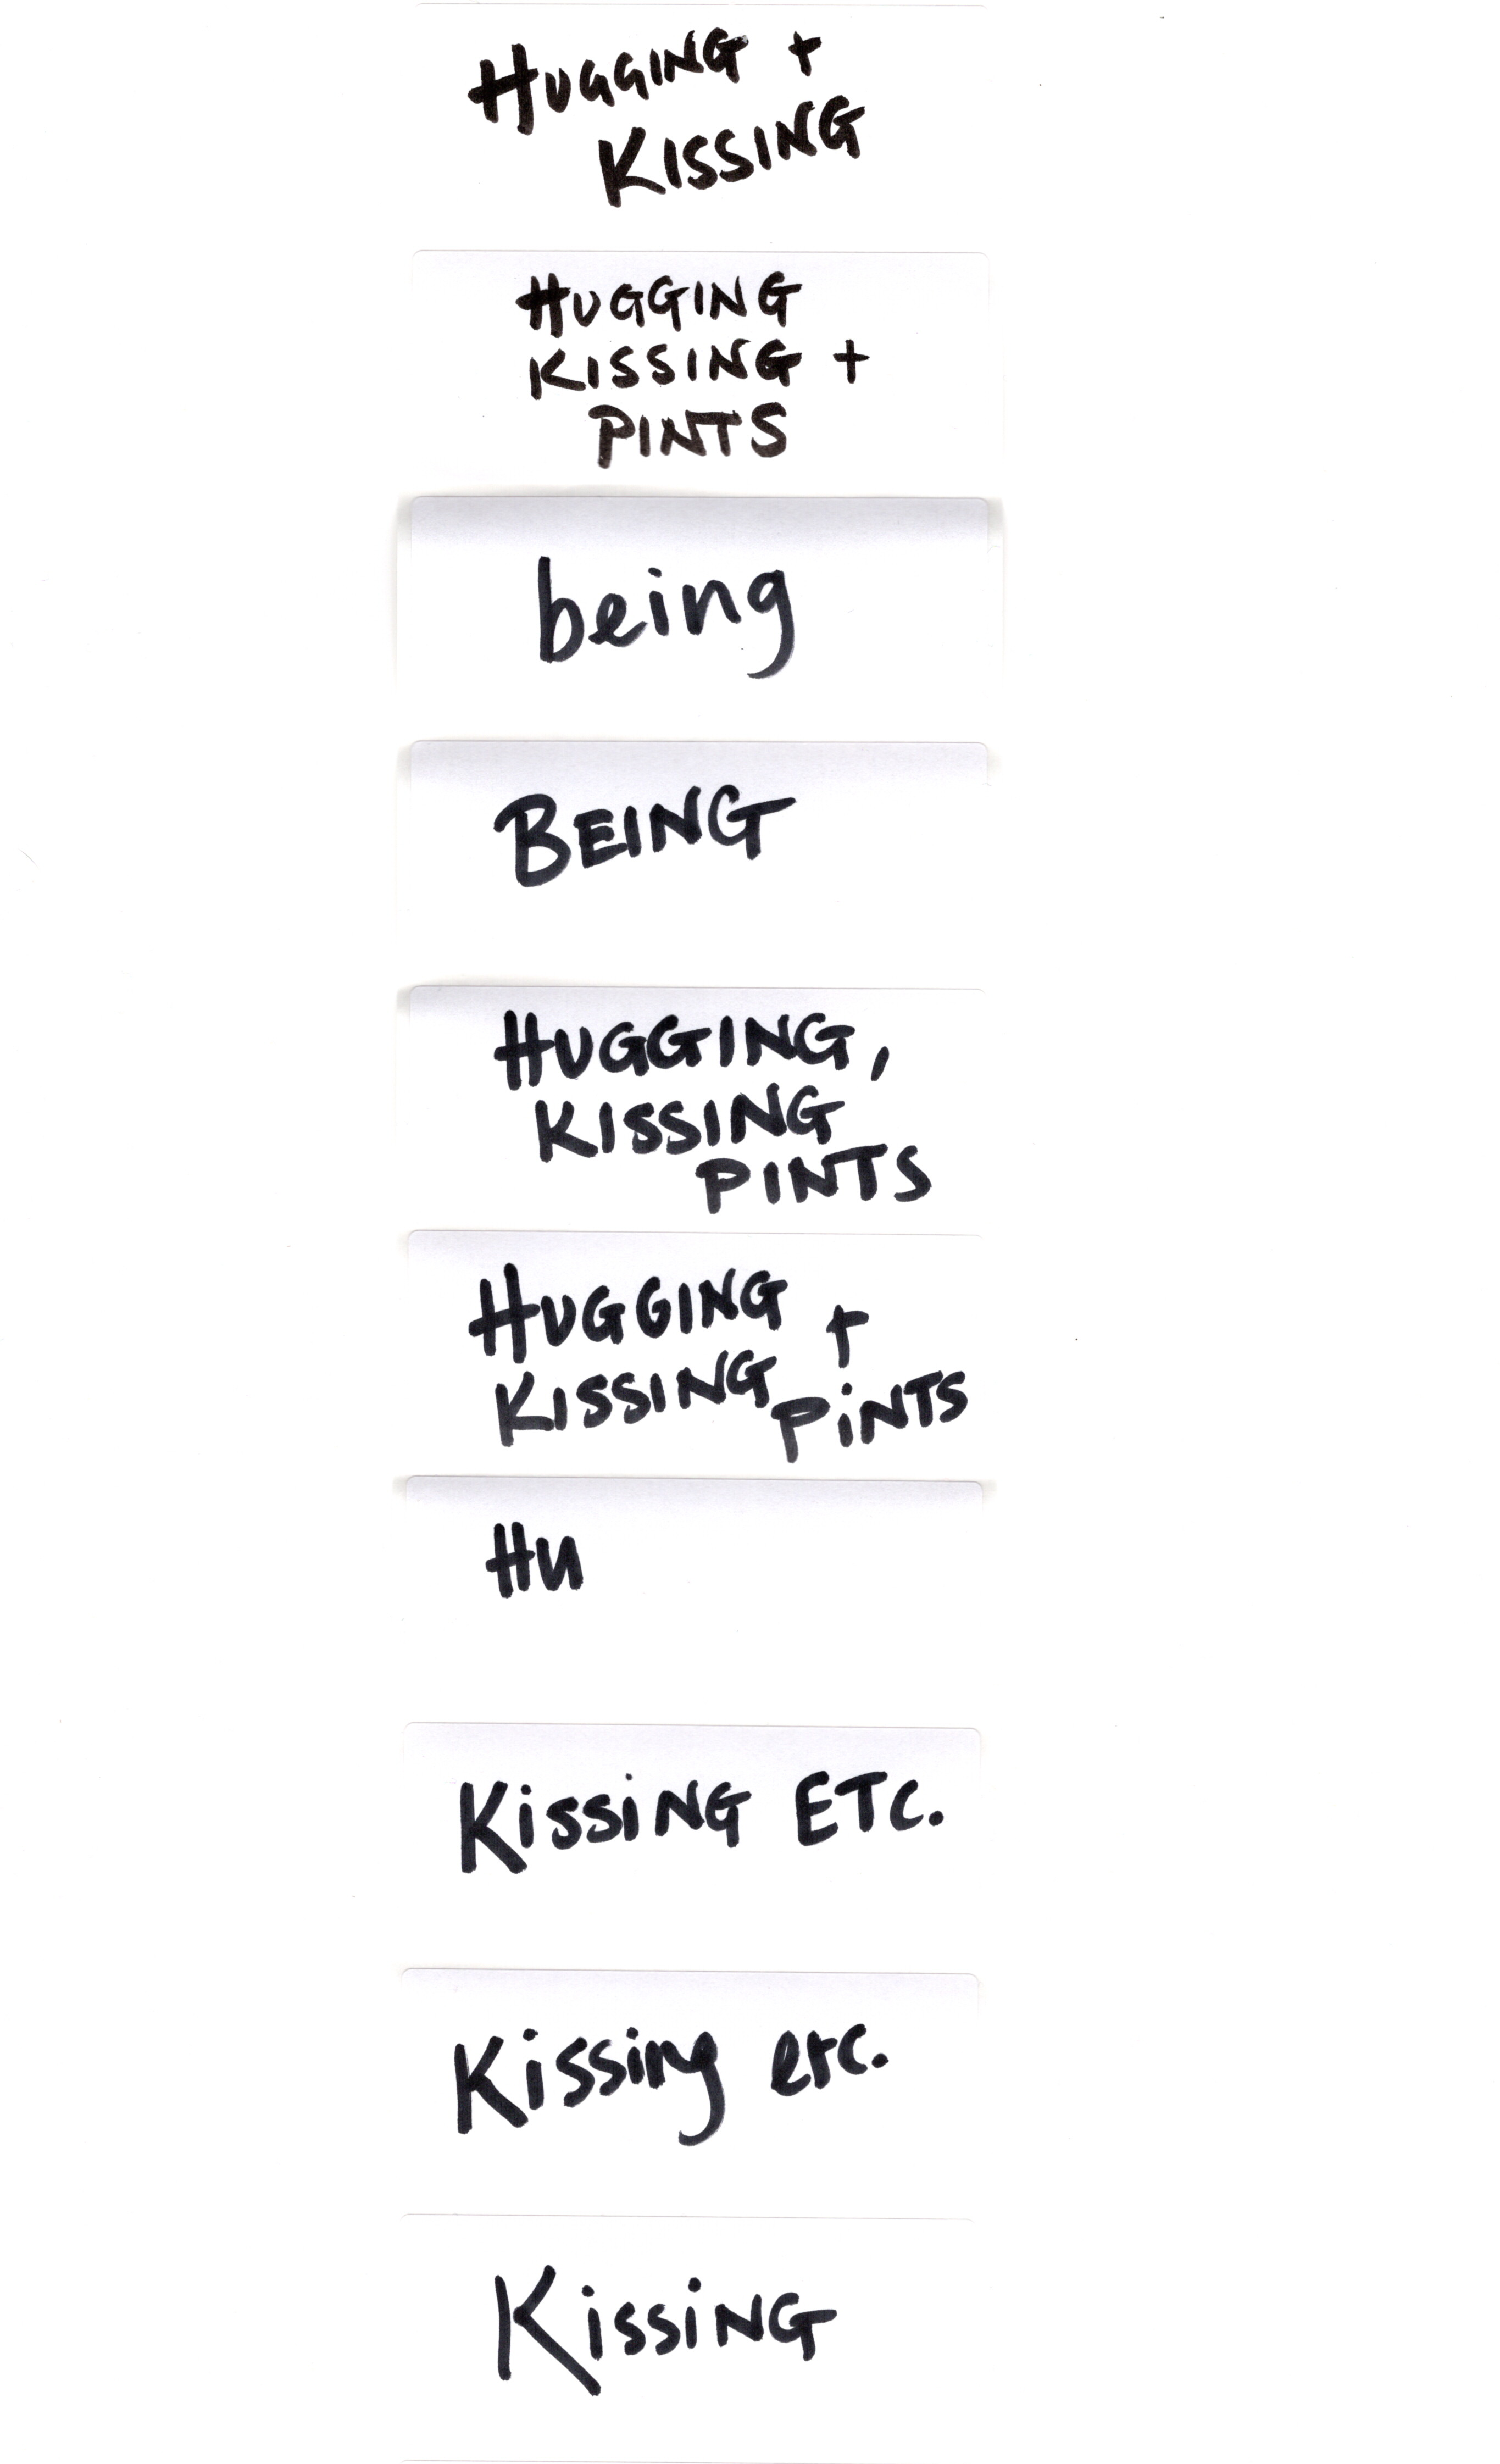 HUGGING +
KISSING
HUGGING
KISSING +
PINTS
being
BEING
HUGGING,
KISSING
PINTS
HUGGING +
KISSING PiNTS
Hu
KissiNG ETC.
Kissing etc.
KissiNG